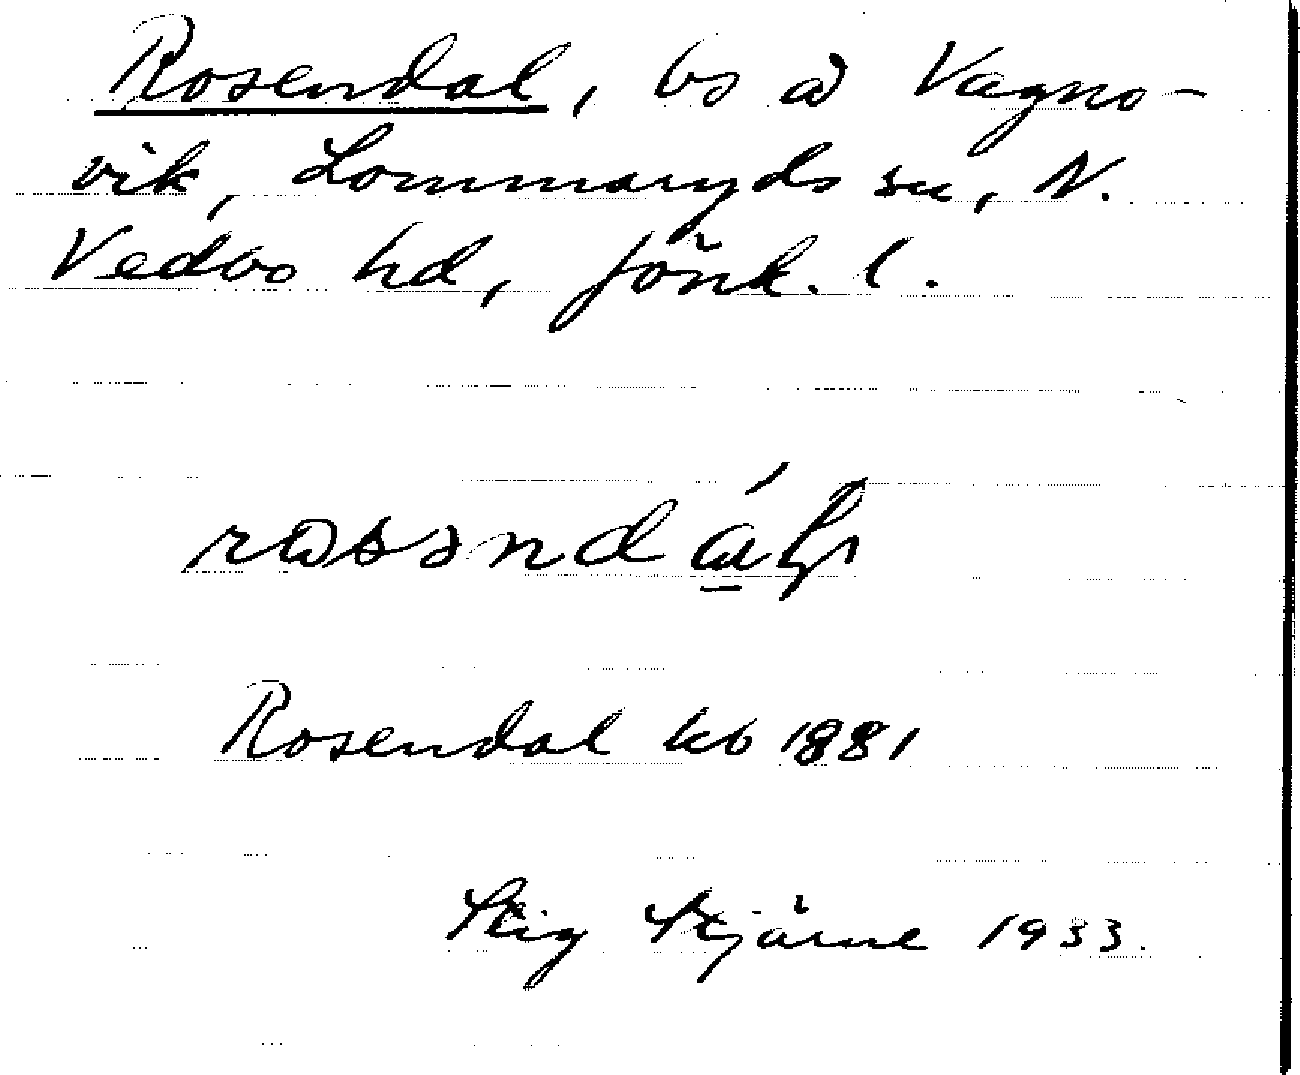 Rosendal, bs å Vagno-
vik, Lommaryds sn, N.
Vedbo hd, Jönk. l.
Rosendal kb 1881
Stig Stjärne 1933.